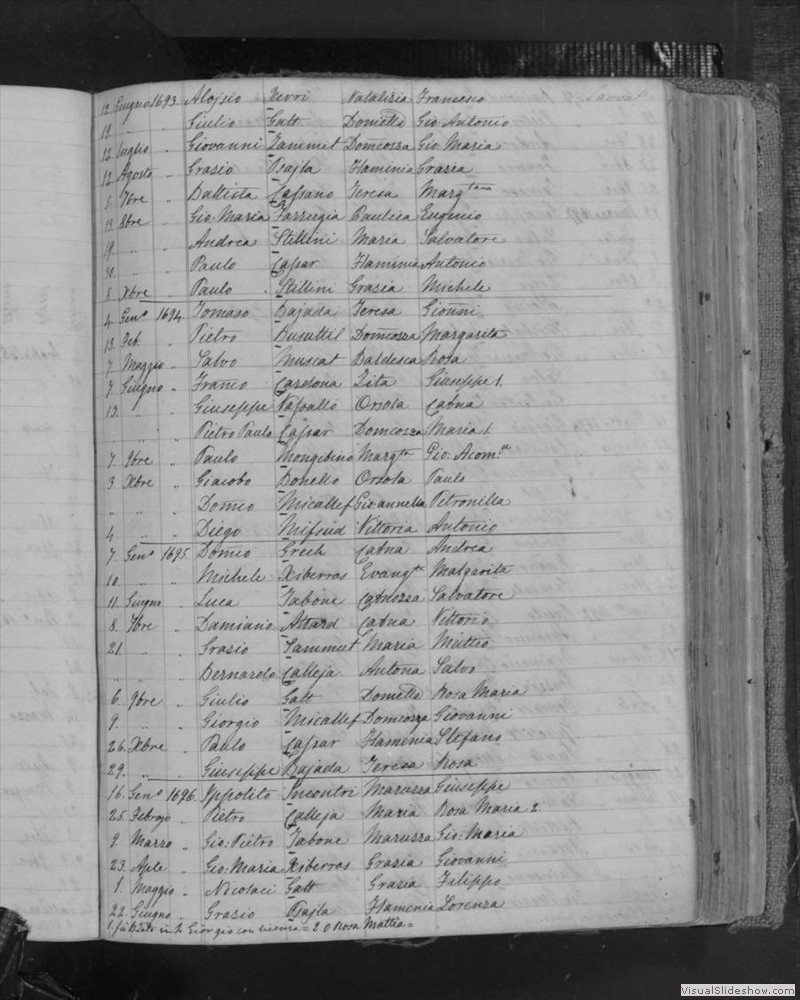 12 Giugno 1693. Aloisio Xerri Natalizia Francesco
12. " " Giulio Gatt Dometta Gio: Antonio
12 Luglio " Giovanni Zammit Domcozza Gio: Maria
12 Agosto " Grasio Psajla Flaminia Grazia
5. 7bre " Battista Cassano Teresa
13 8bre " Gio: Maria Farrugia Paulica Eugenio
19. " " Andrea Stillini Maria Salvatore
30. " " Paulo Cassar Flaminia Antonio
8. Xbre " Paulo Stillini Grasia Michele
4. Genº 1694. Tomaso Bajada Teresa Gionni
13. Feb. " Pietro Busuttil Domcozza Margarita
7 Maggio " Salvo Muscat Baldesca Rosa
7. Giugno " Franco Cardona Zita Giuseppe 1.
13. " " Giuseppe Vassallo Orsola Catna
" " " Pietro Paulo Cassar Domcozza Maria 1.
7. 9bre " Paulo Mongibino Margta
3. Xbre " Giacobo Bonello Orsola Paulo
" " " Domco Micallef Gioannella Petronilla
4 " " Diego Mifsud Vittoria Antonio
7. Genº 1695. Domco Grech Catna Andrea
10. " " Michele Xiberras Evangta Malgarita
11. Giugno " Luca Tabone Catlozza Salvatore
8. 7bre " Damiano Attard Catna Vittorio
21. " " Grasio Sammut Maria Matteo
" " " Bernardo Calleja Antona Salvo
6. 9bre " Giulio Gatt Dometta Rosa Maria
9. " " Giorgio Micallef Domcozza Giovanni
26. Xbre " Paulo Cassar Flamenia Stefano
29. " " Giuseppe Bajada Teresa Rosa
16. Genº 1696. Ippolito Incontri Maruzza Giuseppe
25. Febrajo " Pietro Calleja Maria Rosa Maria 2.
9. Marzo " Gio: Pietro Tabone Maruzza Gio: Maria
23. Aple " Gio: Maria Xiberras Grazia Giovanni
1. Maggio " Nicolaci Gatt Grazia Filippo
22. Giugno " Grasio Psajla Flamenia Lorenza
Giorgio con licenza = 2. O Rosa Mattia =
VisualSlideshow.com